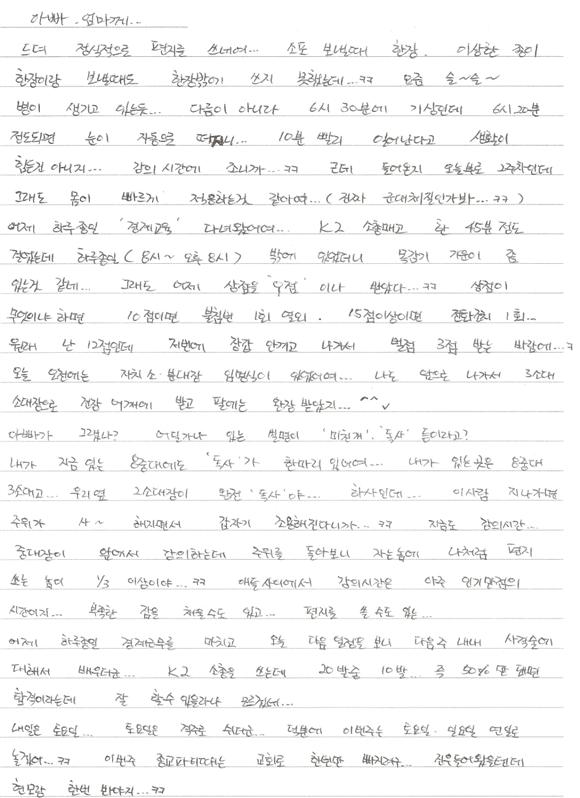 아빠. 엄마께...
드뎌 정식적으로 편지를 쓰네여... 소포 보낼때 한장. 이상한 종이
한장이랑 보낼때도 한장밖에 쓰지 못했는데...ㅋㅋ 요즘 슬~슬~
병이 생기고 있는듯... 다름이 아니라 6시 30분에 기상인데 6시 20분
정도되면 눈이 자동으로 떠지니... 10분 빨리 일어난다고 생활이
힘든건 아니지... 강의 시간에 조니까...ㅋㅋ 근데 들어온지 오늘부로 2주차인데
그래도 몸이 빠르게 적응하는것 같아여...(진짜 군대체질인가봐...ㅋㅋ)
어제 하루종일 '경계교육' 다녀왔어여... K2 소총매고 한 45분 정도
걸었는데 하루종일(8시~오후 8시) 밖에 있었더니 목감기 기운이 좀
있는것 같네... 그래도 어제 상점을 '4점'이나 받았다...ㅋㅋ 상점이
무엇이냐 하면 10점이면 불침번 1회 열외. 15점이상이면 전화걸기 1회...
원래 난 12점인데 저번에 장갑 안끼고 나가서 벌점 3점 받는 바람에...ㅋ
오늘 오전에는 자치 소·분대장 임명식이 있었어여... 나도 앞으로 나가서 3소대
소대장으로 견장 어깨에 받고 팔에는 완장 받았지...^^
아빠가 그랬나? 어딜가나 있는 별명이 '미친개'. '독사' 들이라고?
내가 지금 있는 8중대에도 '독사'가 한마리 있어여... 내가 있는곳은 8중대
3소대고... 우리옆 2소대장이 완전 '독사'야... 하사인데... 이사람 지나가면
주위가 사~ 해지면서 갑자기 조용해진다니까...ㅋㅋ 지금도 강의시간...
중대장이 앞에서 강의하는데 주위를 돌아보니 자는놈에 나처럼 편지
쓰는 놈이 1/3 이상이야...ㅋㅋ 애들사이에서 강의시간은 아주 인기만점의
시간이지... 부족한 잠을 채울수도 있고... 편지를 쓸 수도 있는...
어제 하루종일 경계근무를 마치고 오늘 다음 일정을 보니 다음주 내내 사격술에
대해서 배우더군... K2 소총을 쏘는데 20발중 10발... 즉 50%만 되면
합격이라는데 잘 할수 있을라나 모르겠네...
내일은 토요일... 토요일은 격주로 쉬더군... 덕분에 이번주는 토요일. 일요일 연일로
놀겠어...ㅋㅋ 이번주 종교파티때는 교회로 한번만 빠지려구... 친우들어왔을텐데
현모랑 한번 봐야지...ㅋㅋ